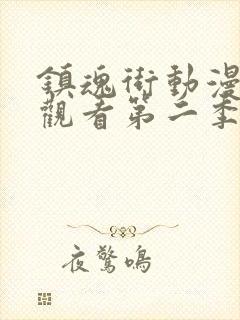 鎮魂街動漫
觀看第二季
夜驚鳴